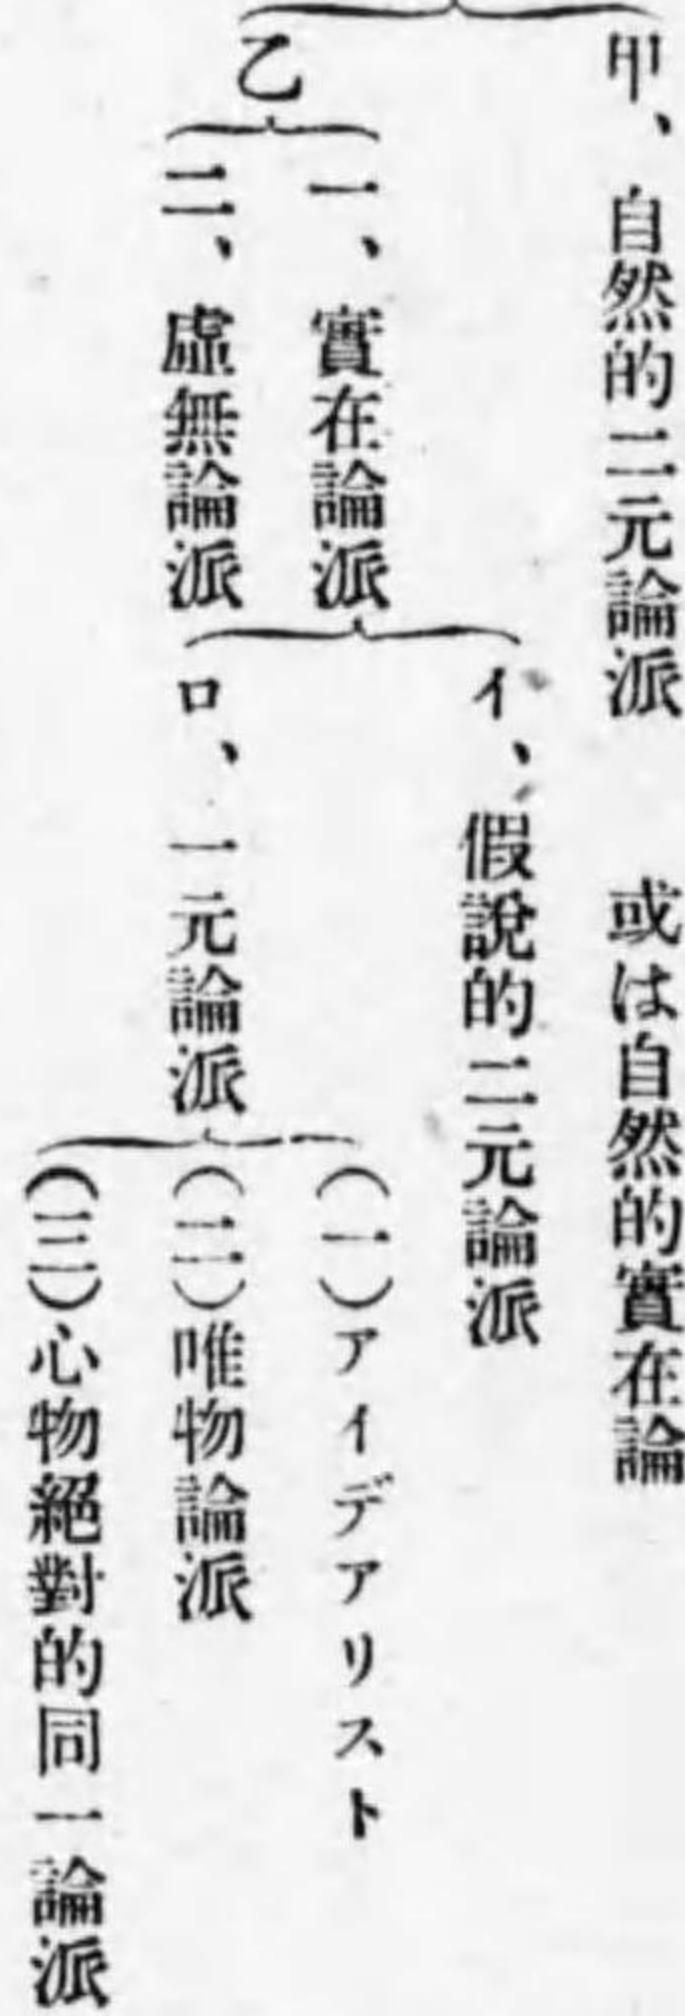 甲、自然的二元論派　或は自然的實在論
乙
一、實在論派
二、虛無論派
イ、假說的二元論派
ロ、一元論派
(一)アイデアリスト
(二)唯物論派
(三)心物絕對的同一論派